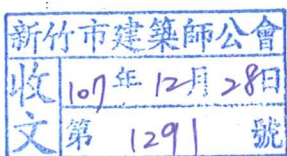 新竹市建築師公會
收文
107年12月28日
第 1291 號